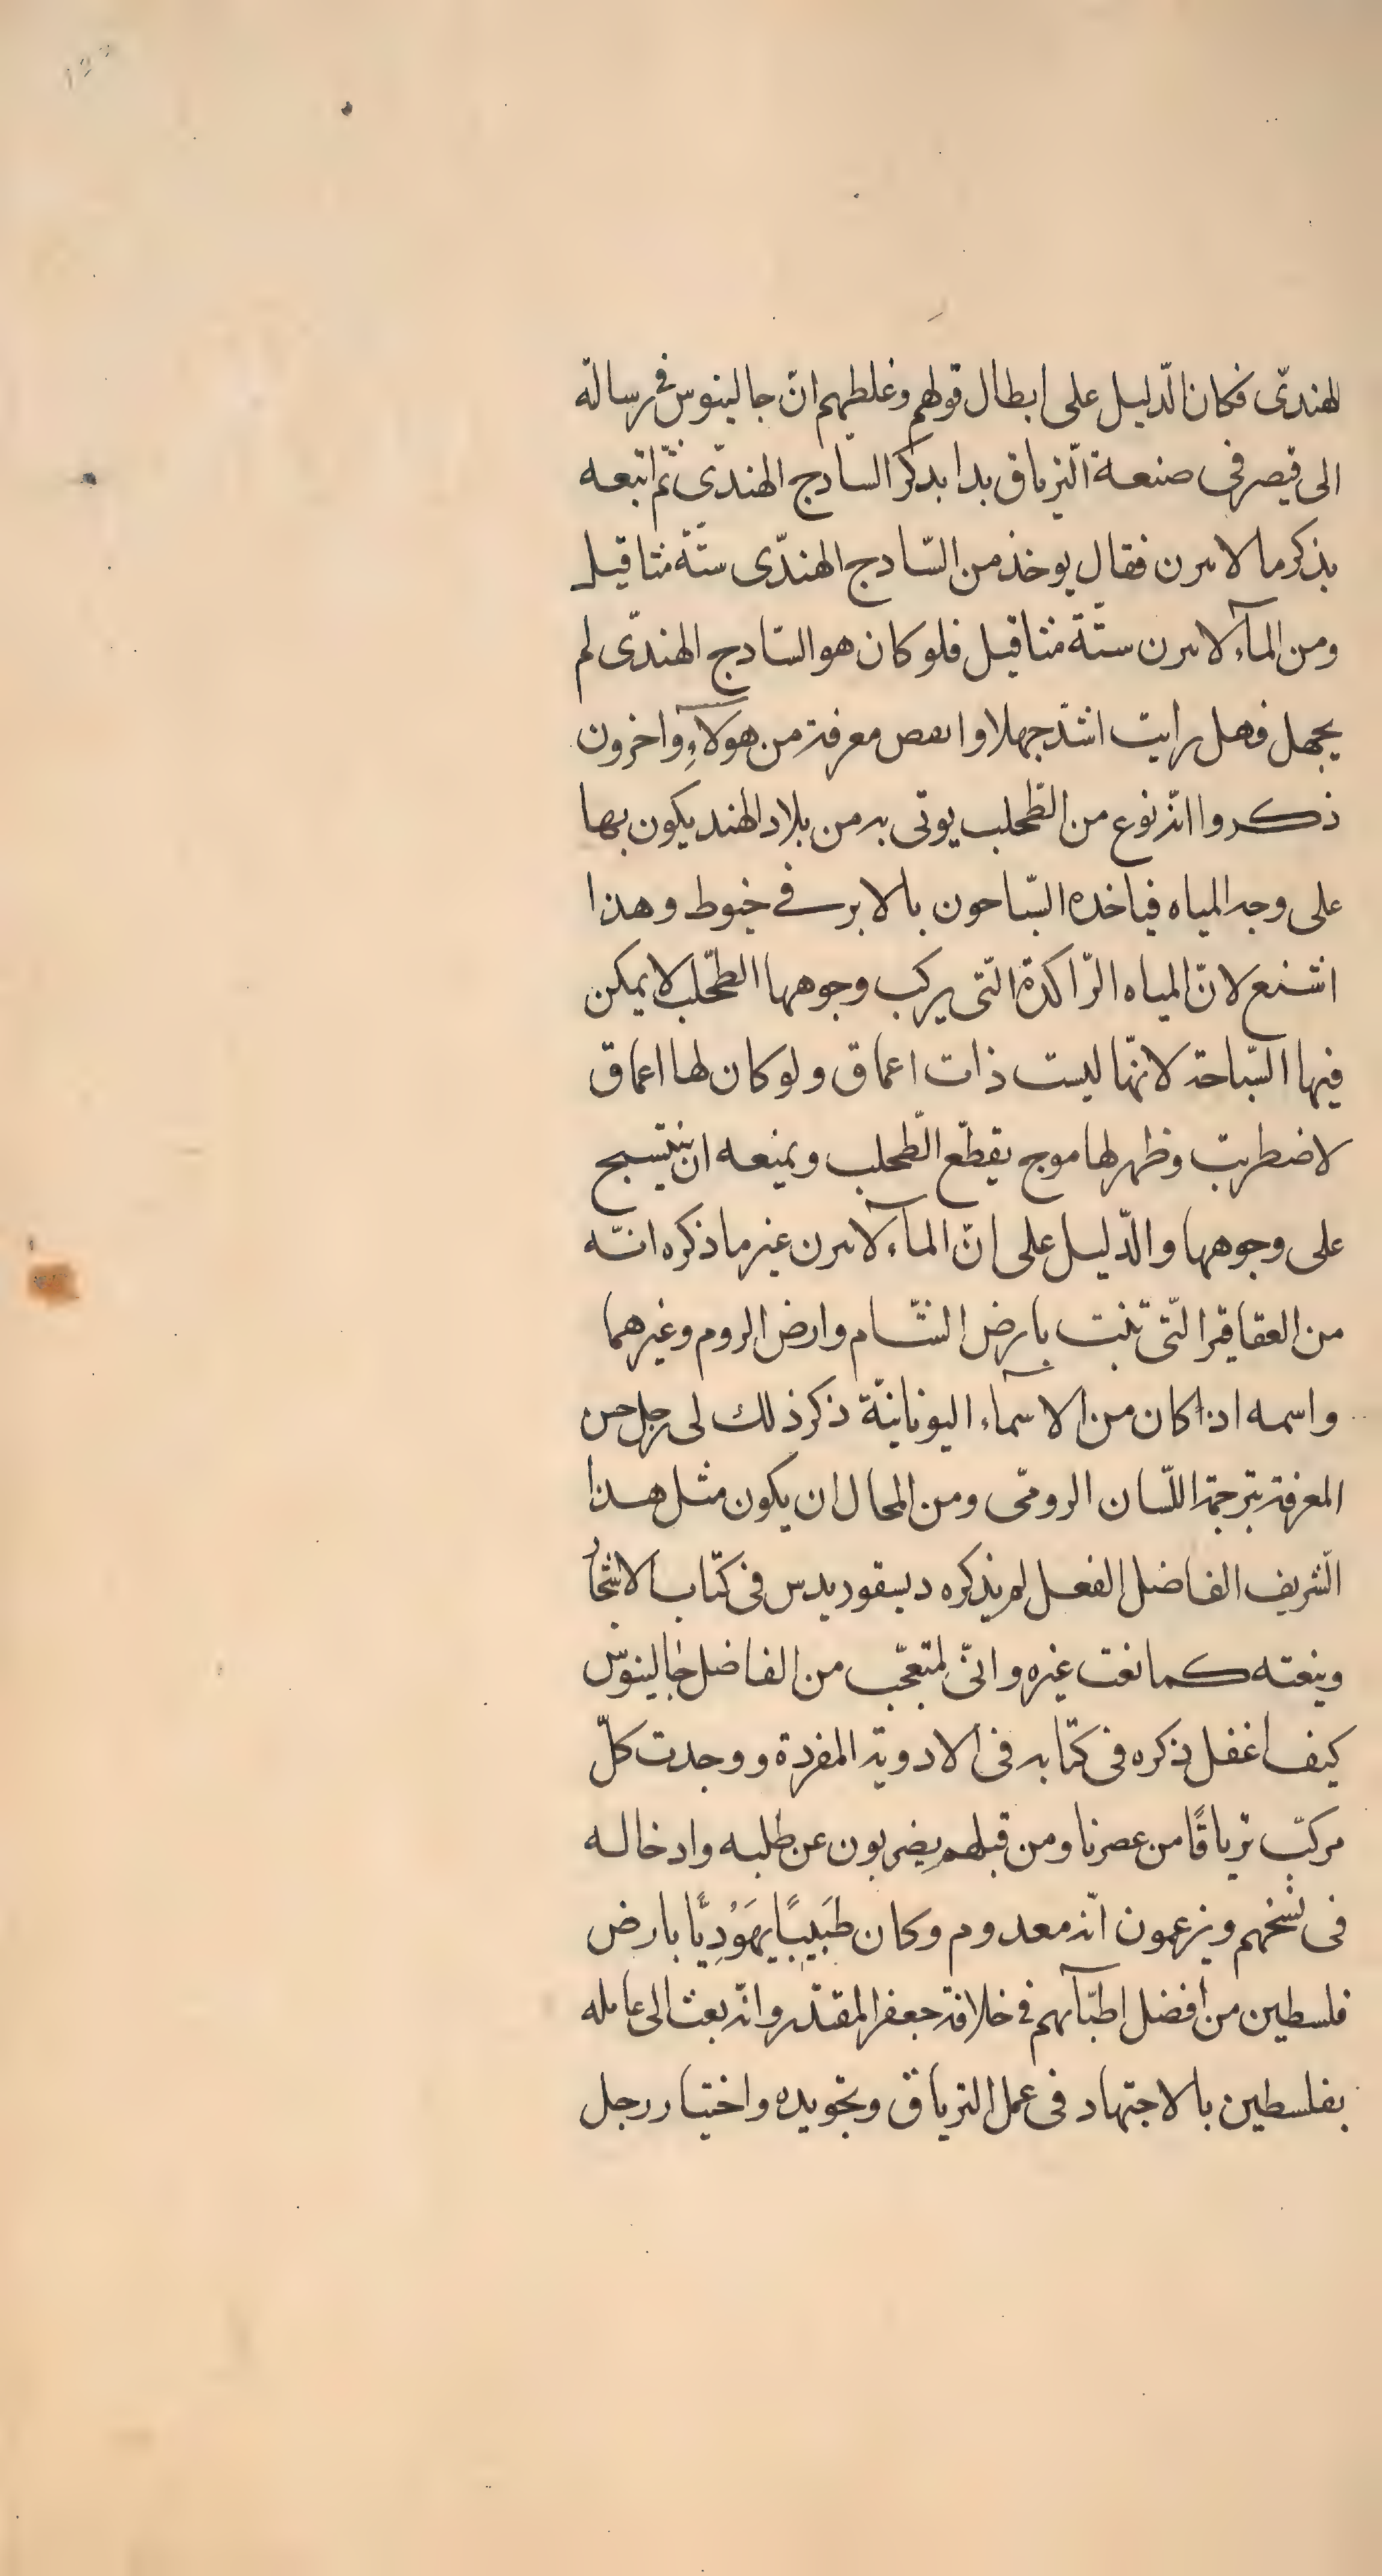 الهندىّ فكان الدّليل على ابطال قولهم وغلطهم انّ جالينوس فى رسالته
الى قيصر فى صنعة التّرياق بدا بدكر السادج الهندىّ ثمّ اتبعه
بذكر مالاىرن فقال يوخذ من السّادج الهندّى ستّة مثاقيل
ومن المآء لاىرن ستّة مثاقيل فلو كان هو السّادج الهندّى لم
يجهل فهل رايت اشدّ جهلا وانقص معرفة من هولآءِ واخرون
ذكروا انّه نوع من الطّحلب يوتى به من بلاد الهند يكون بها
على وجه المياه فياخده السّباحون بالابر فى خيوط وهذا
اشنع لانّ المياه الرّاكدة الّتى يركب وجوهها الطّحلب لا يمكن
فيها السّباحة لانّها ليست ذات اعماق ولو كان لها اعماق
لاضطربت وظهر لها موج يقطّع الطّحلب ويمنعه ان ينتسج
على وجوهها والدّليل على انّ المآء لاىرن غير ما ذكره انّه
من العقاقير الّتى تنبت بارض الشّام وارض الروم وغيرهما
واسمه اذا كان من الاسمآء اليونانيّة ذكر ذلك لى رجل حسن
المعرفة بترجمة اللّسان الرومّى ومن المحال ان يكون مثل هذا
الشّريف الفاضل الفعل لم يذكره ديسقوريدس فى كتاب الاشجار
وينعته كما نعت غيره وانّى لمتعجّب من الفاضل جالينوس
كيف اغفل ذكره فى كتابه فى الادوية المفردة ووجدت كلّ
مركّب ترياقًا من عصرنا ومن قبلهم يضربون عن طلبه وادخاله
فى نسخهم ويزعمون انّه معدوم وكان طَبِيبًا يَهَوُدِيًّا بارض
فلسطين من افضل اطبّآئهم فى خلافة جعفر المقتدر وانّه بعث الى عامله
بفلسطين بالاجتهاد فى عمل الترياق وتجويده واختيار رجل